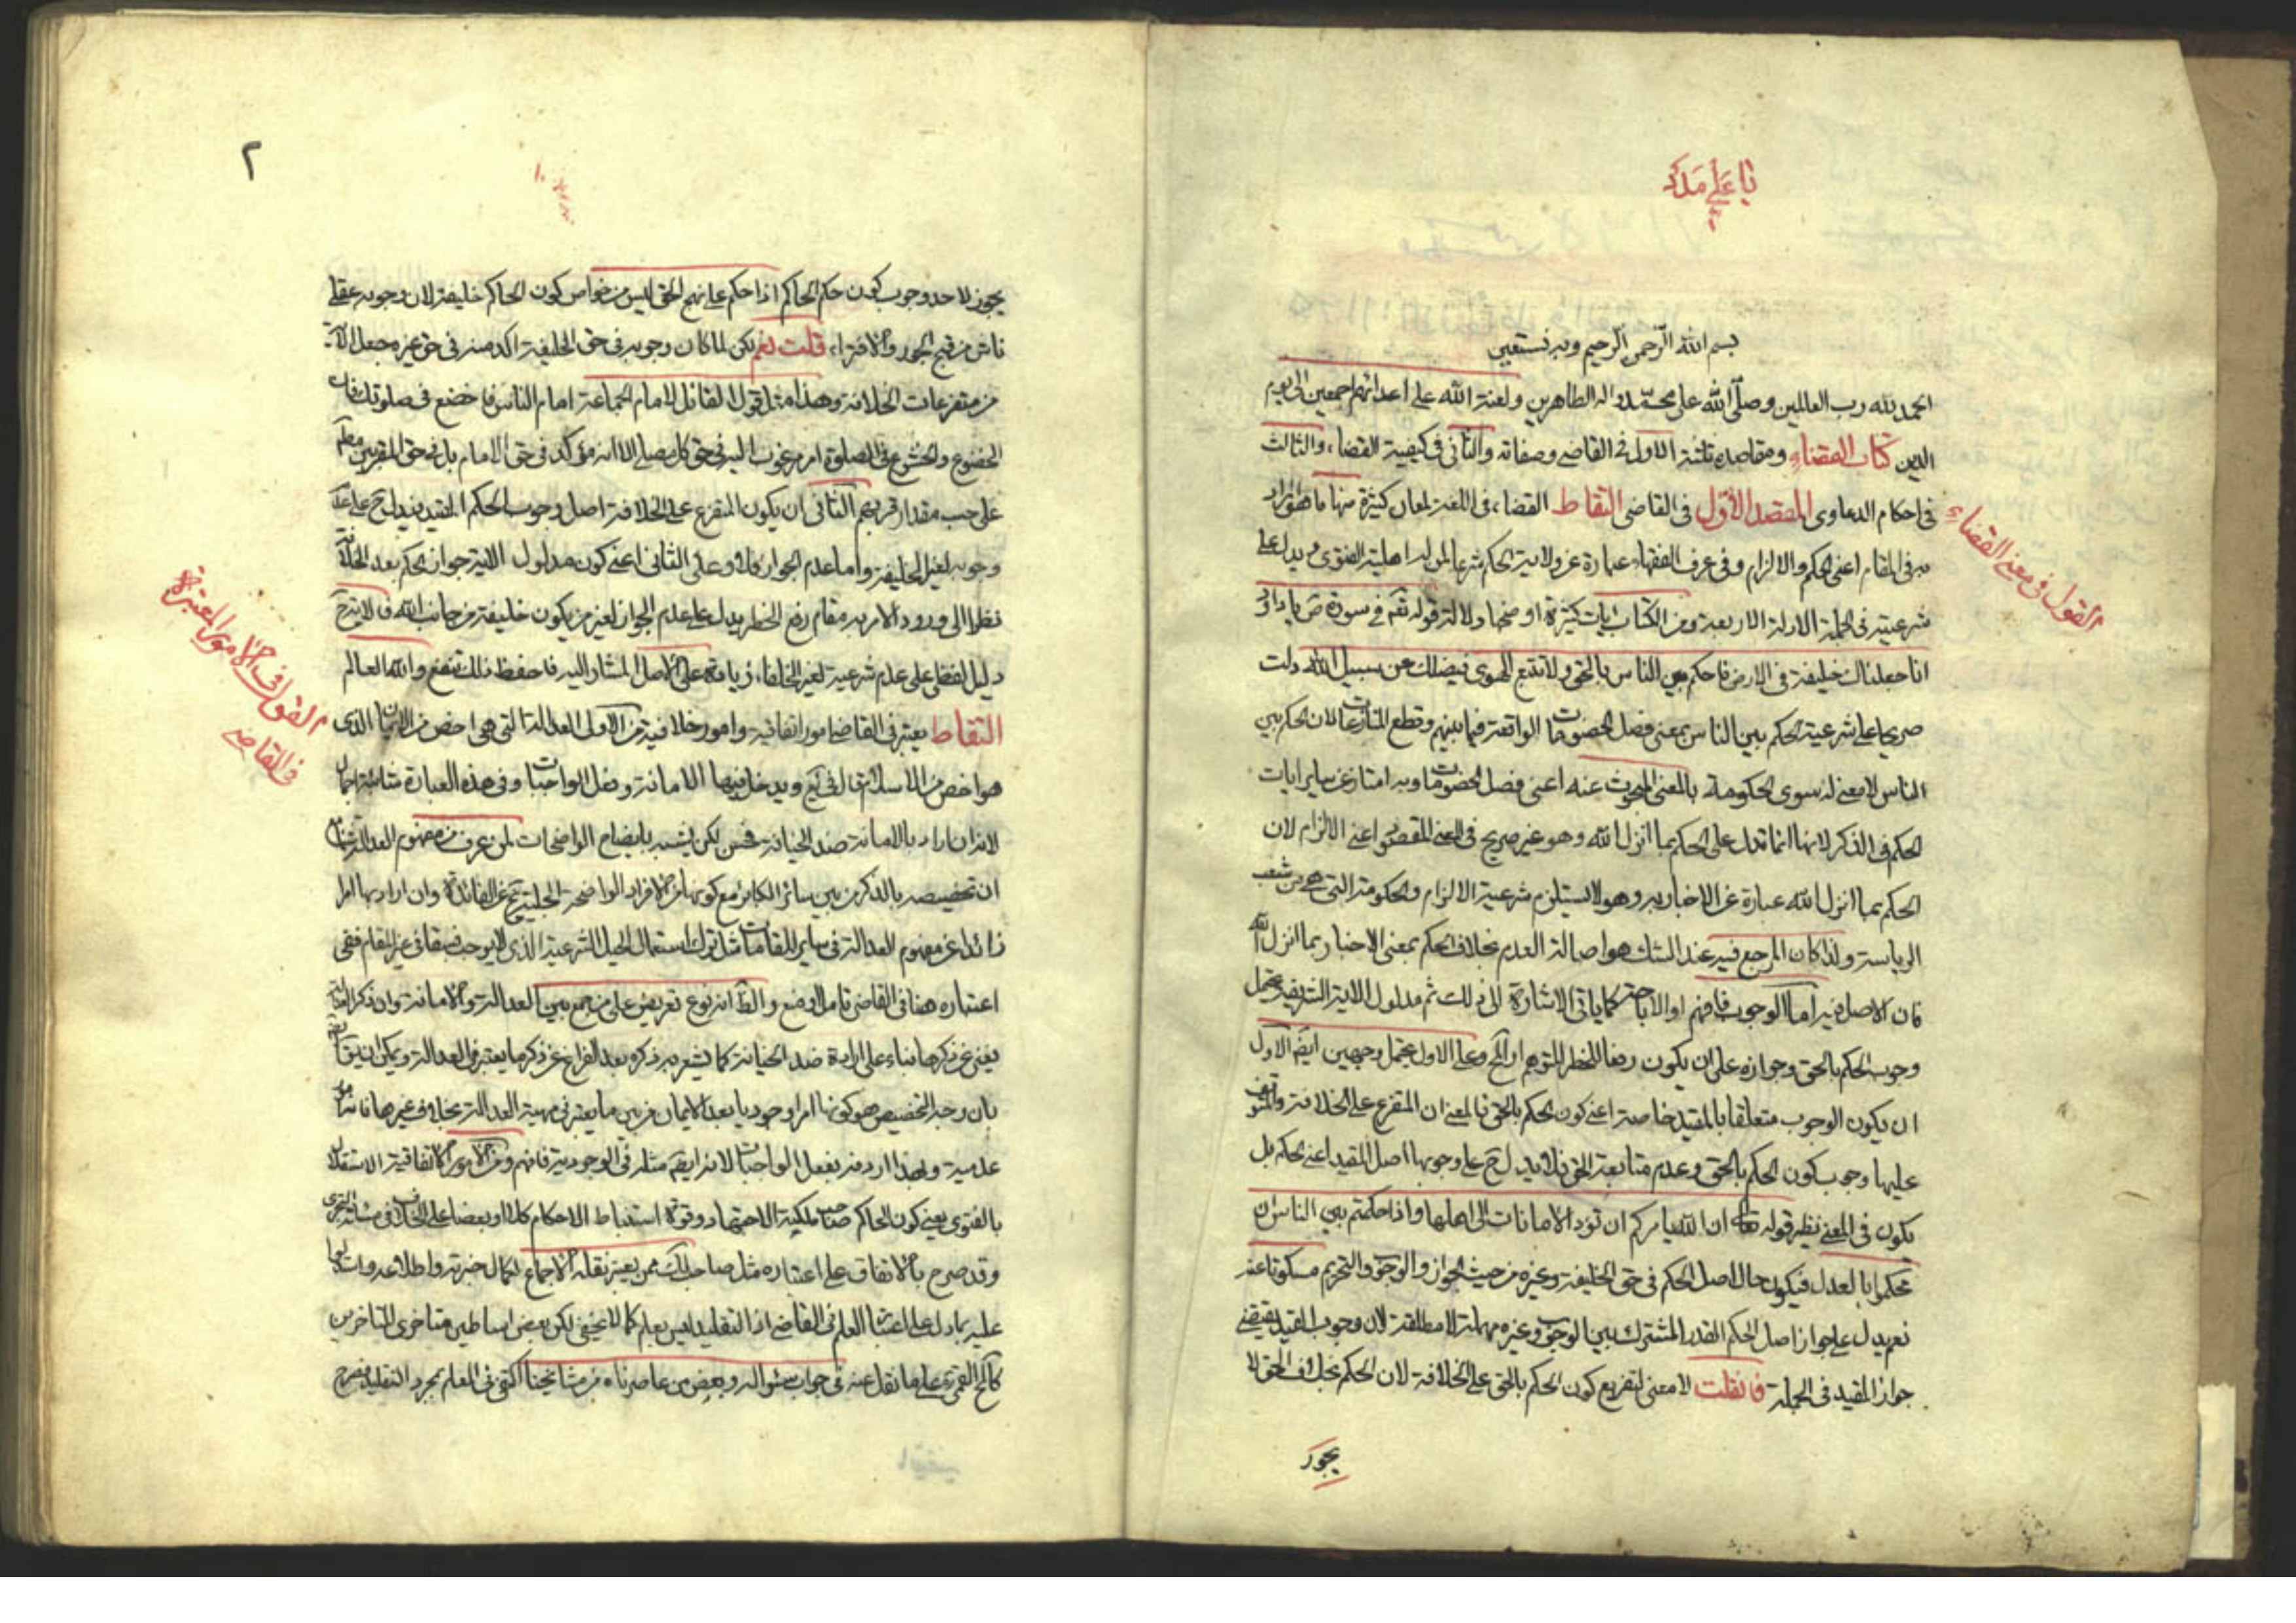 يا علي مدد
بسم الله الرحمن الرحيم وبه نستعين
الحمد لله رب العالمين وصلى الله على محمد واله الطاهرين ولعنة الله على اعدائهم اجمعين الى يوم
الدين كتاب القضاء ومقاصده ثلثة الاول في القاضي وصفاته والثاني في كيفية القضاء والثالث
في احكام الدعاوى المقصد الاول في القاضي التقاط القضاء في اللغة لمعان كثيرة منها ما هو المراد
به في المقام اعني الحكم والالزام وفي عرف الفقهاء عبارة عن ولاية الحكم شرعا لمن له اهلية الفتوى ويدل على
شرعيته في الجملة الادلة الاربعة ومن الكتاب ايات كثيرة اوضحها دلالة قوله تعم في سورة ص يا داود
انا جعلناك خليفة في الارض فاحكم بين الناس بالحق ولا تتبع الهوى فيضلك عن سبيل الله دلت
صريحا على شرعية الحكم بين الناس بمعنى فصل الخصومات الواقعة فيما بينهم وقطع المنازعات لان الحكم بين
الناس لا معنى له سوى الحكومة بالمعنى المبحوث عنه اعني فصل الخصومات وبه امتاز عن ساير ايات
الحكم في الذكر لانها انما تدل على الحكم بما انزل الله وهو غير صريح في المعنى المقصود اعني الالزام لان
الحكم بما انزل الله عبارة عن الاخبار به وهو لا يستلزم شرعية الالزام والحكومة التي هي من شعب
الرياسة ولذا كان المرجع فيه عند الشك هو اصالة العدم بخلاف الحكم بمعنى الاخبار بما انزل الله
فان الاصل فيه اما الوجوب فافهم او الاباحة كما ياتي الاشارة الى ذلك ثم مدلول الاية الشريفة يحتمل
وجوب الحكم بالحق وجوازه على ان يكون رفعا للخطر المتوهم او الحج وعلى الاول يحتمل وجهين ايضم الاول
ان يكون الوجوب متعلقا بالمقيد خاصة اعني كون الحكم بالحق فالمعنى ان المتفرع على الخلافة والمتوقف
عليها وجوب كون الحكم بالحق وعدم متابعة الهوى فلا يدل ح على وجوبها اصل المقيد اعني الحكم بل
يكون في المعنى نظير قوله تعالى ان الله يامركم ان تؤدوا الامانات الى اهلها واذا حكمتم بين الناس ان
تحكموا بالعدل فيكون حال اصل الحكم في حق الخليفة وغيره من حيث الجواز والوجوب والتحريم مسكوتا عنه
نعم يدل على جواز اصل الحكم القدر المشترك بين الوجوب وغيره مهملة لا مطلقة لان وجوب القيد يقتضي
جواز المقيد في الجملة فان قلت لا معنى لتفريع كون الحكم بالحق على الخلافة لان الحكم بخلاف الحق لا
يجوز
القول في معنى القضاء
٢
يجوز لاحد وجوب كون حكم الحاكم اذا حكم على نهج الحق ليس من خواص كون الحاكم خليفة لان وجوبه عقلي
ناش من قبح الجور والافتراء قلت نعم لكن لما كان وجوبه في حق الخليفة اكد منه في حق غيره جعل الاية
من متفرعات الخلافة وهذا مثل قول القائل لامام الجماعة امام الناس فاخضع في صلوتك فان
الخضوع والخشوع في الصلوة امر مرغوب اليه في حق كل مصل الا انه مؤكد في حق الامام بل في حق المقربين
على حسب مقدار قربهم الثاني ان يكون المتفرع على الخلافة اصل وجوب الحكم المقيد فيدل ح على عدم
وجوبه لغير الخليفة واما عدم الجواز فلا وعلى الثاني اعني كون مدلول الاية جواز الحكم بعد الخلافة
نظرا الى ورود الامر به مقام رفع الخطر يدل على عدم الجواز لغير من يكون خليفة من جانب الله فالاية ح
دليل لفظي على عدم شرعية لغير الخلفاء زيادة على الاصل المشار اليه فاحفظ ذلك تنتفع والله العالم
التقاط يعتبر في القاضي امور اتفاقية وامور خلافية من الاولى العدالة التي هي اخص من الايمان الذي
هو اخص من الاسلام قال في يع ويدخل فيها الامانة وفعل الواجبات وفي هذه العبارة شائبة اجمال
لانه ان اراد بالامانة ضد الخيانة فحسن لكن يشبه بايضاح الواضحات لمن عرف مفهوم العدالة
ان تخصيصه بالذكر من بين سائر الكبائر مع كونها من الافراد الواضحة الجلية عن الفائدة وان اراد بها امرا
زائدا عن مفهوم العدالة في ساير المقامات مثل ترك استعمال الحيل الشرعية الذي لا يوجب فسقا في غير المقام ففي
اعتباره هنا في القاضي تامل اوضح والظ انه نوع تعريض على من جمع بين العدالة والامانة وان ذكر العدالة
يغني عن ذكرها بناء على ارادة ضد الخيانة كما يشعر به ذكره بعد الفراغ عن ذكر ما يعتبر في العدالة ويمكن ان يق
بان وجه التخصيص هو كونها امرا وجوديا بعد الايمان من بين ما يعتبر في مهية العدالة بخلاف غيرها فانه
عدمية ولهذا اردفه بفعل الواجبات لانه ايضم مثله في الوجودية فافهم ومن الامور الاتفاقية الاستقلال
بالفتوى يعني كون الحاكم صاحب ملكة الاجتهاد وقوة استنباط الاحكام كلا او بعضا على الخلاف في مسئلة التجزي
وقد صرح بالاتفاق على اعتباره مثل صاحب لك ممن يعتبر بنقله الاجماع لكمال خبرته واطلاعه
عليه بما دل على اعتبار العلم في القاضي اذ التقليد ليس بعلم كما لا يخفى لكن بعض اساطين متاخري المتاخرين
كالمحقق القمي ره على ما نقل عنه في جواب سئواله وبعض من عاصرناه من مشايخنا اكتفى في العلم بمجرد التقليد فصرح
القول في الامور المعتبرة
في القاضي